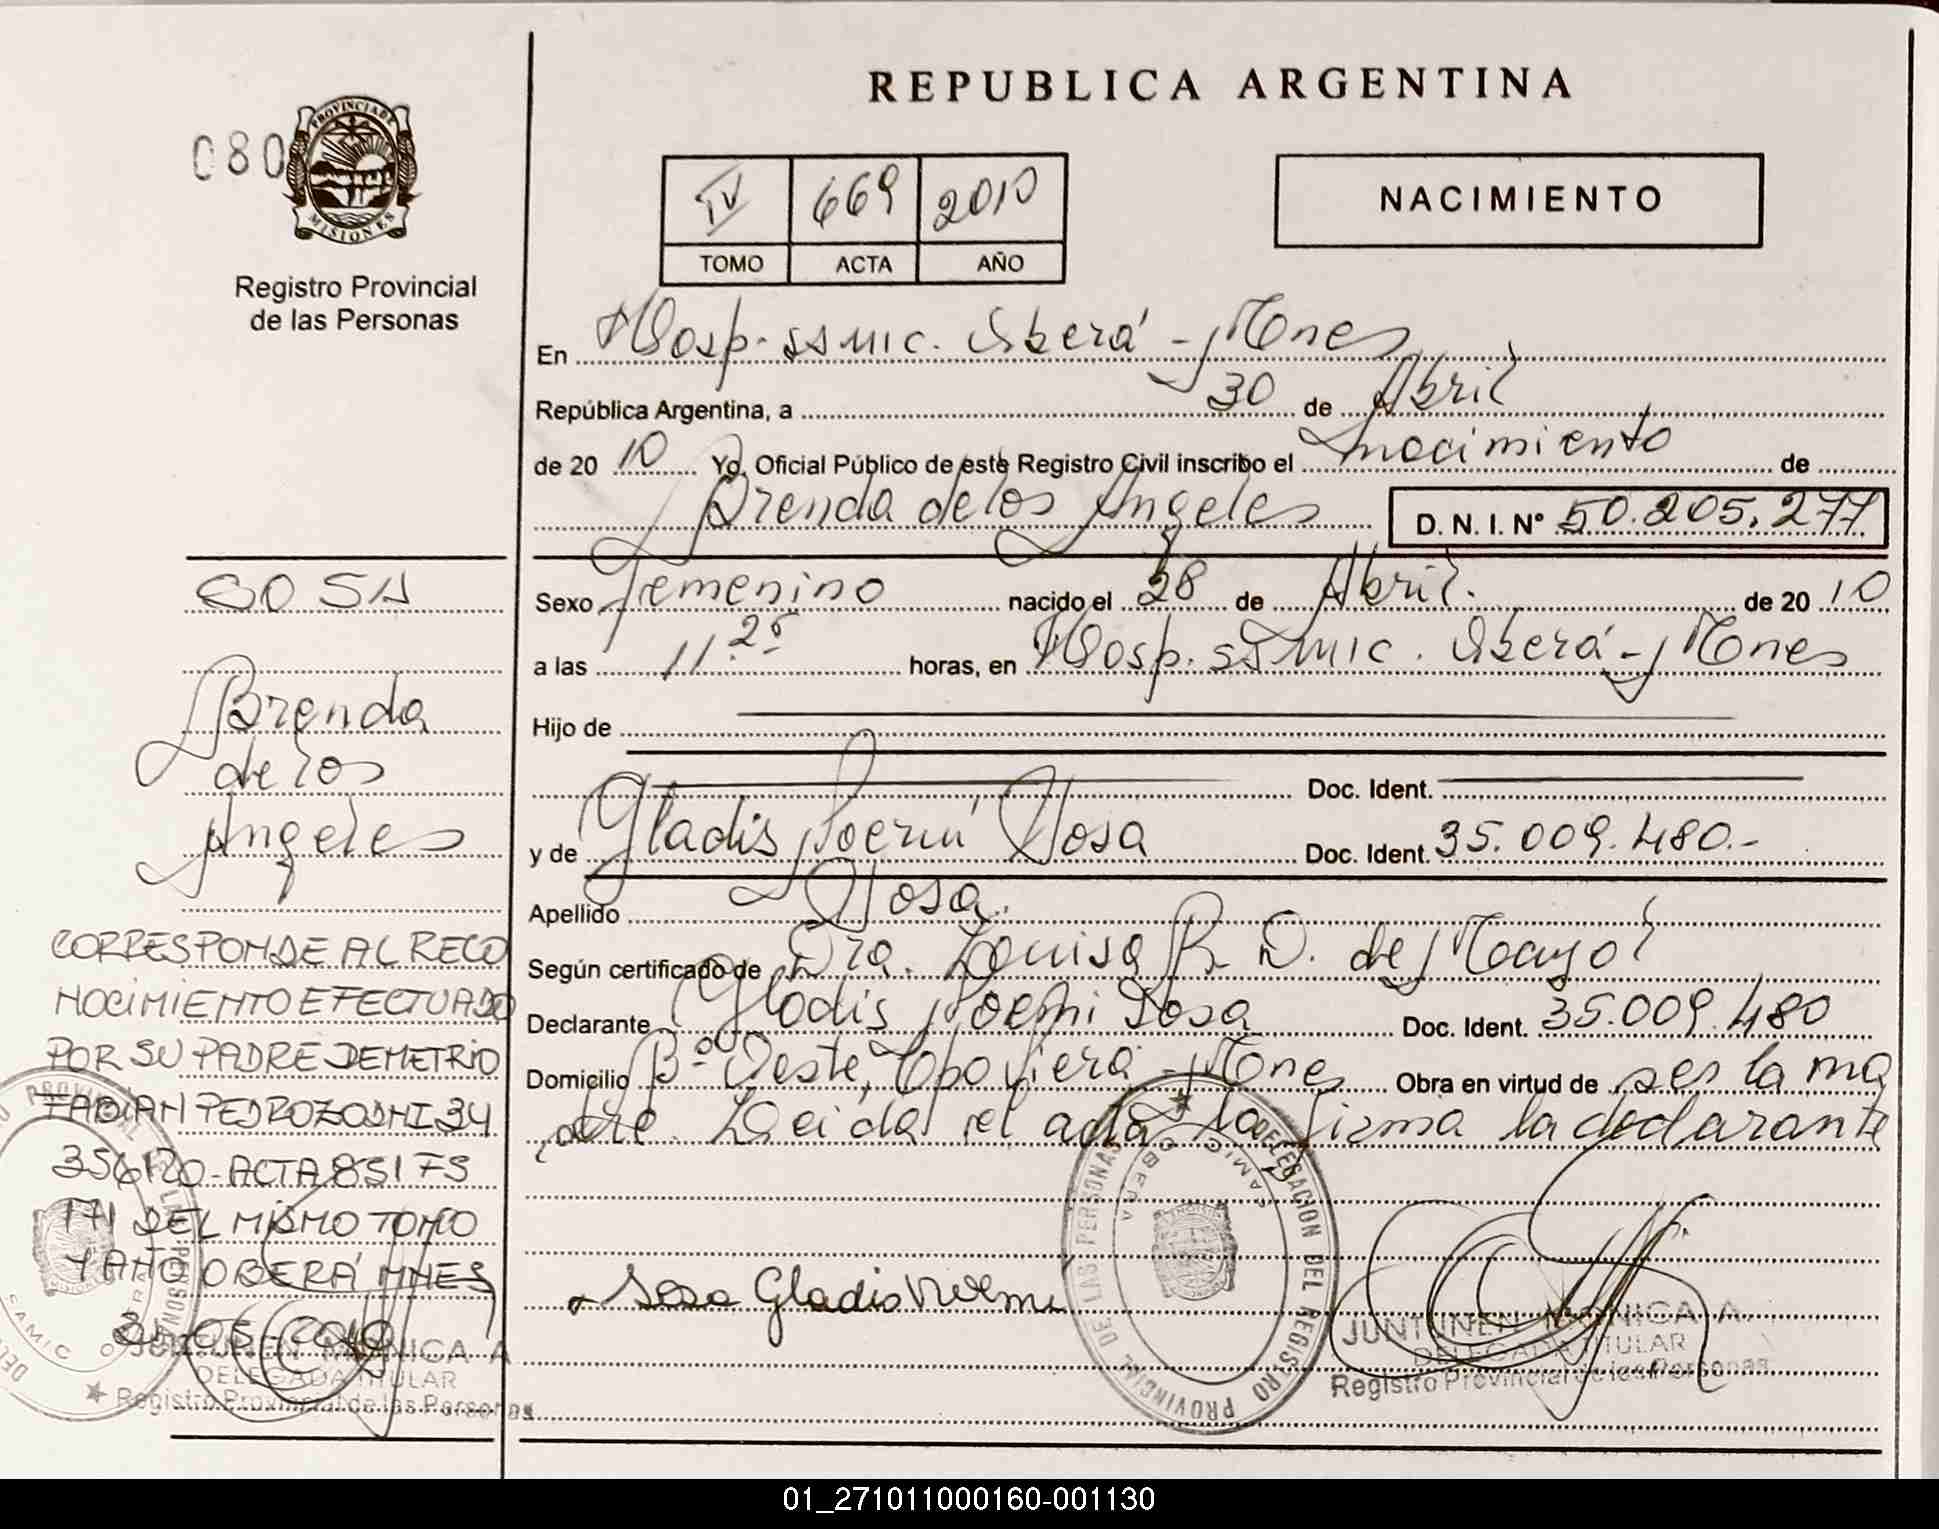 REPUBLICA ARGENTINA
080
PROVINCIA DE
MISIONES
Registro Provincial
de las Personas
IV 669 2010
TOMO ACTA AÑO
NACIMIENTO
En Hosp. ssmic. Oberá - Mnes
República Argentina, a 30 de Abril
de 20 10 Yo, Oficial Público de este Registro Civil inscribo el nacimiento de
Brenda de los Angeles D. N. I. Nº 50.205.277
Sexo Femenino nacido el 28 de Abril. de 20 10
a las 11.25 horas, en Hosp. ssmic. Oberá - Mnes
Hijo de
Doc. Ident.
y de Gladis Noemí Sosa Doc. Ident. 35.009.480.-
Apellido Sosa.
Según certificado de Dra. Louisa R. D. de Mayol
Declarante Gladis Noemi Sosa Doc. Ident. 35.009.480
Domicilio Bº Oeste, Cpo Viera - Mnes Obra en virtud de ser la ma
dre. Leida el acta la firma la declarante
Sosa Gladis Noemi
DELEGACION DEL REGISTRO PROVINCIAL DE LAS PERSONAS
SAMIC OBERA
JUNTUNEN MONICA A.
DELEGADA TITULAR
Registro Provincial de las Personas
SOSA
Brenda
de los
Angeles
CORRESPONDE AL RECO
NOCIMIENTO EFECTUADO
POR SU PADRE DEMETRIO
FABIAN PEDROZO DNI 34
356120 - ACTA 851 FS
171 DEL MISMO TOMO
Y AÑO OBERÁ MNES
JUNTUNEN MONICA A
DELEGADA TITULAR
Registro Provincial de las Personas
01_271011000160-001130